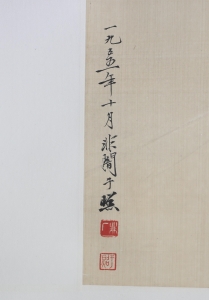 一九五五年十月非闇于照